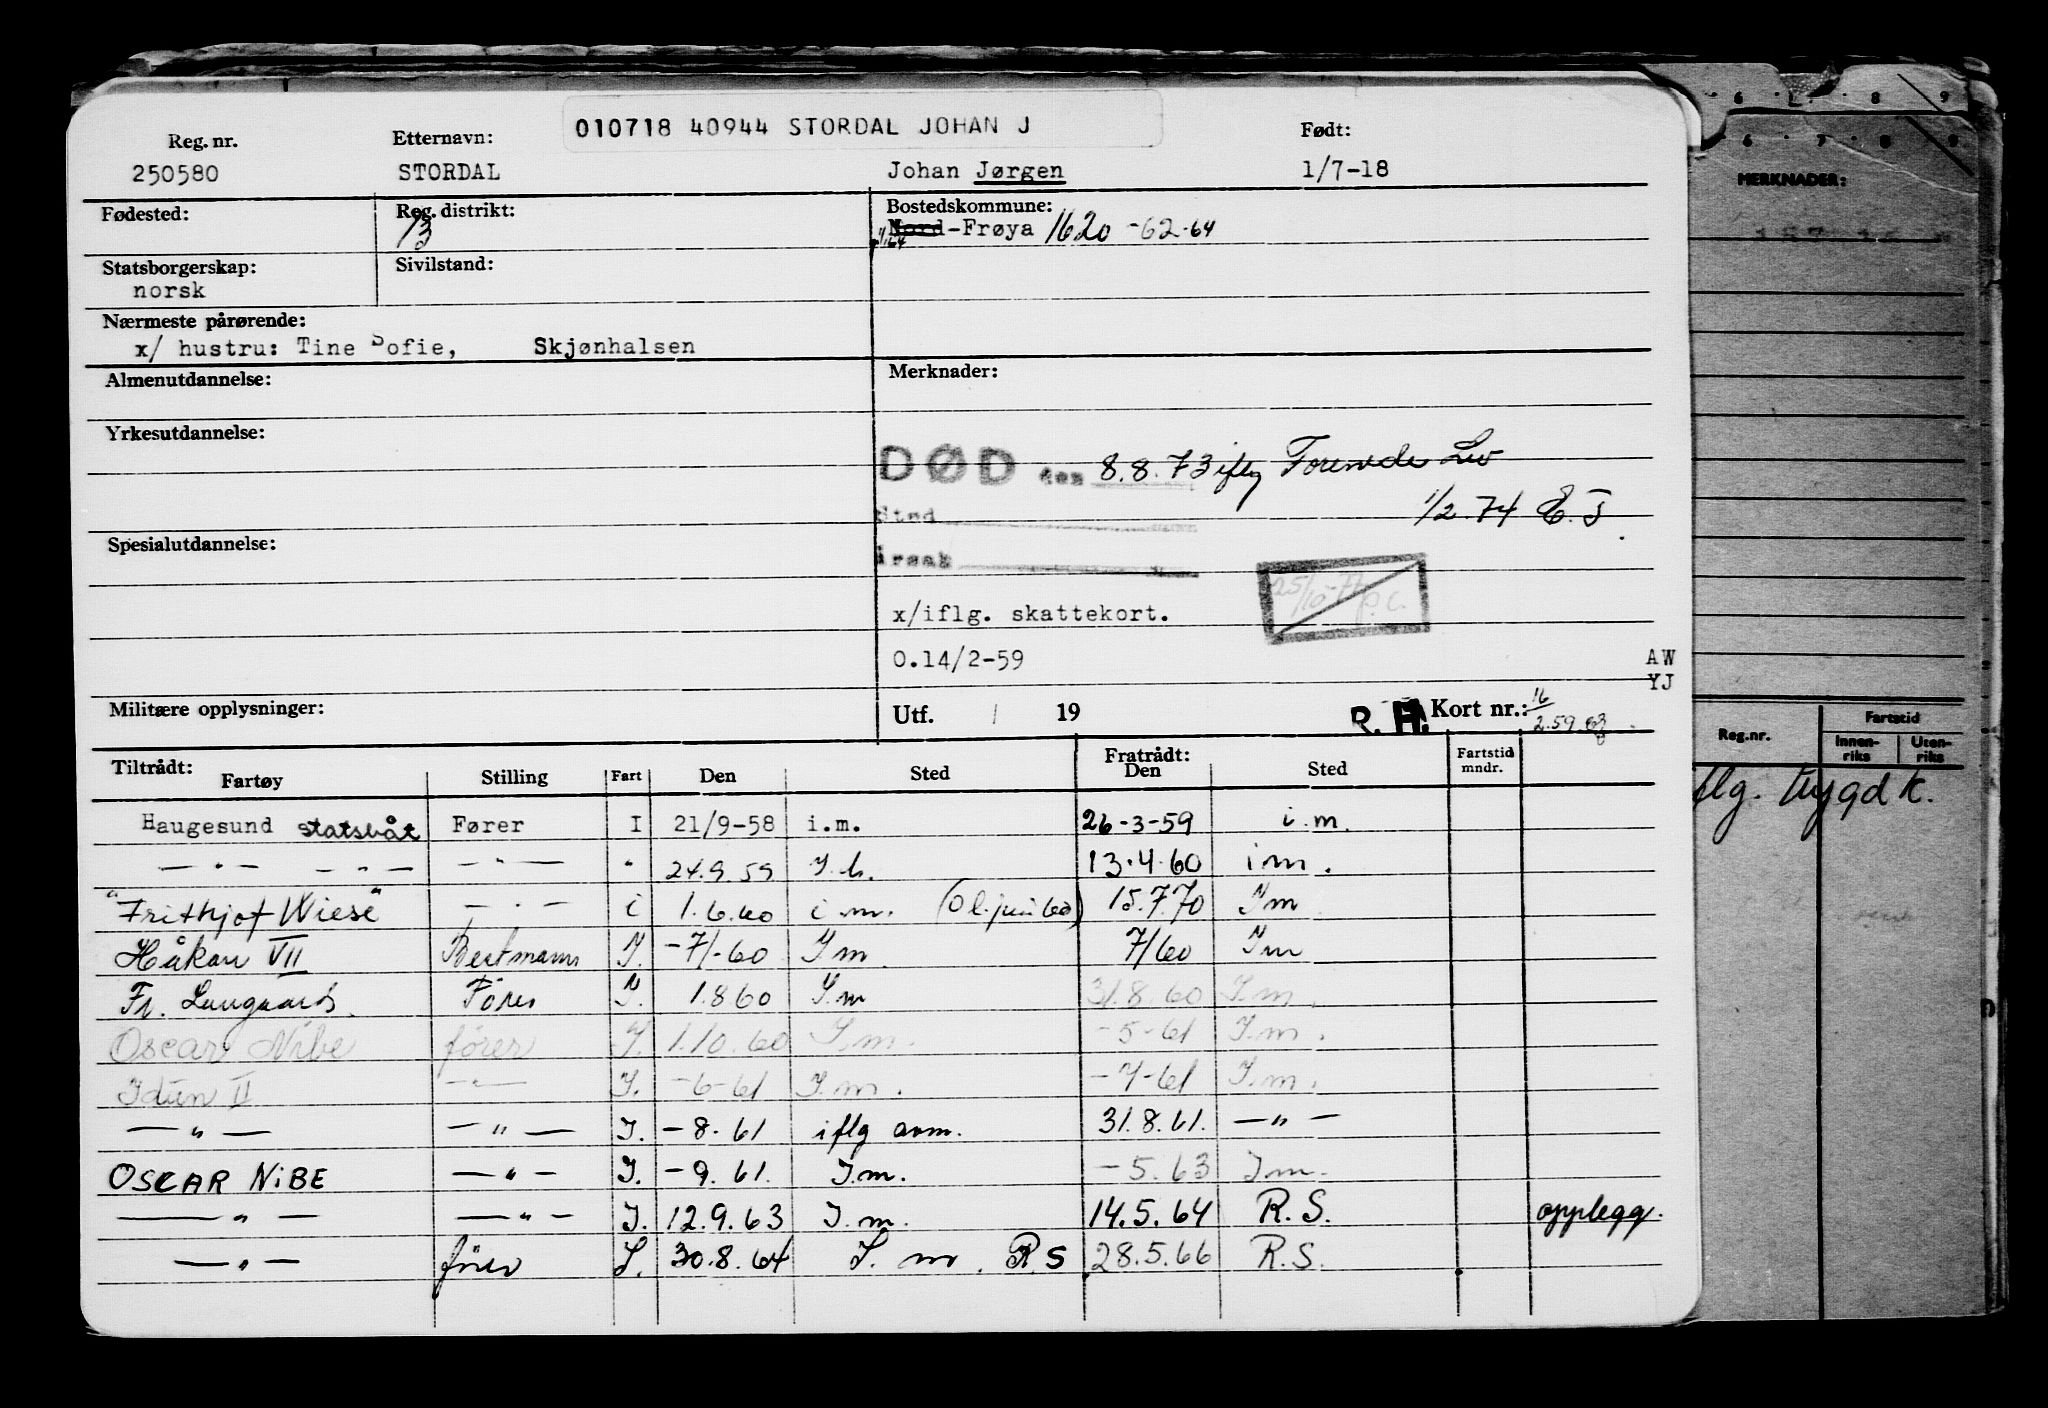 010718 40944 STORDAL JOHAN J
Reg. nr. Etternavn: Født:
250580 STORDAL Johan Jørgen 1/7-18
Fødested: Reg. distrikt: Bostedskommune:
13 Nord-Frøya 1620 -62-64
Statsborgerskap: Sivilstand:
norsk
Nærmeste pårørende:
x/ hustru: Tine Sofie, Skjønhalsen
Almenutdannelse: Merknader:
Yrkesutdannelse:
DØD den 8.8.73 iflg Forenede Liv
Sted 1/2-74 E.J.
Spesialutdannelse:
Årsak
25/10-77 p.c.
x/iflg. skattekort.
0.14/2-59
AW
YJ
Militære opplysninger: Utf. / 19 R.H. Kort nr.: 16/2.59
Tiltrådt: Fratrådt:
Fartøy Stilling Fart Den Sted Den Sted Fartstid mndr.
Haugesund statsbåt Fører I 21/9-58 i.m. 26-3-59 i.m.
— " — — " — — " — " 24.9.59 I.m. 13.4.60 i m.
"Frithjof Wiese" — " — i 1.6.60 i m. 15.7.70 I m
Håkon VII Bestmann I. -7/-60 I m 7/60 I m
Fr. Langaard Fører I. 1.8 60 I.m 31.8.60 I.m.
Oscar Nibe fører I. 1.10.60 I.m. -5-61 I.m.
Idun II — " — I. -6-61 I.m. -7-61 I.m.
— " — — " — I. -8.61 iflg avm. 31.8.61. — " —
OSCAR NIBE — " — I. -9.61. I.m. -5.63 I m.
— " — — " — I. 12.9.63 I.m. 14.5.64 R.S. opplegg.
— " — fører I. 30.8.64 I. m. R S 28.5.66 R.S.
6 7 8 9
MERKNADER:
Reg.nr. Fartstid
Innen-riks Uten-riks
flg. trygd k.